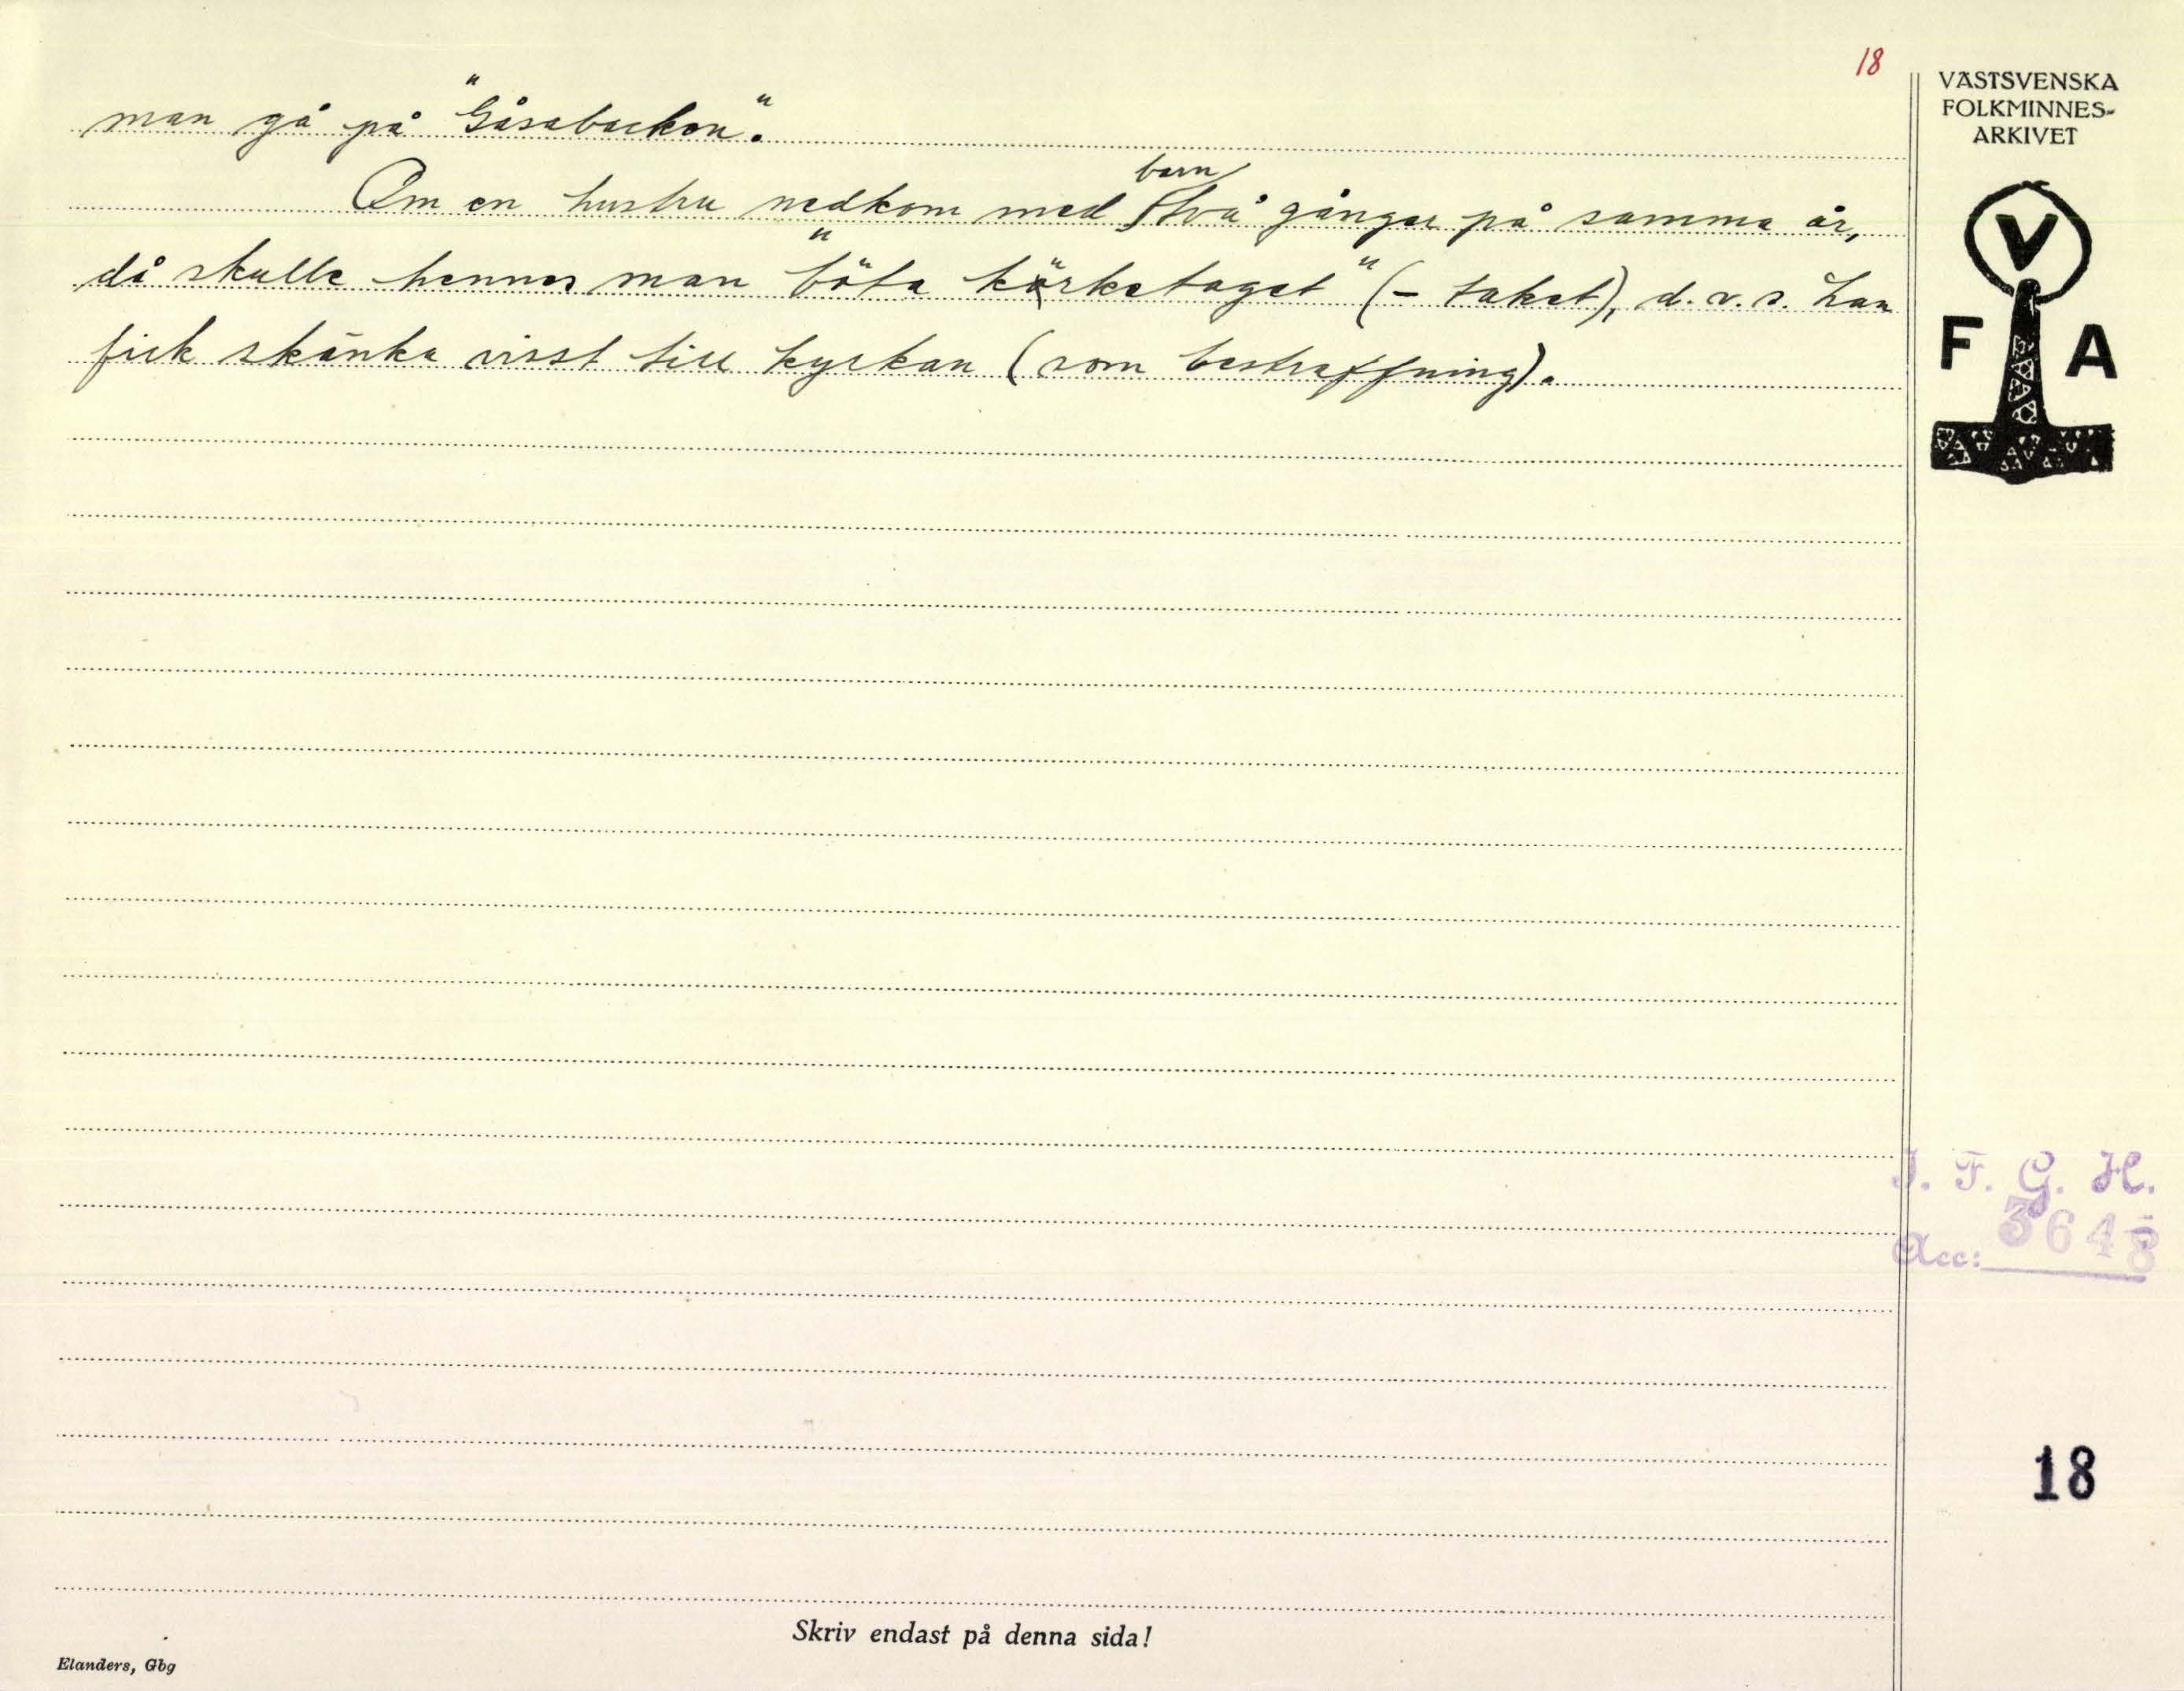 18
VÄSTSVENSKA
FOLKMINNES-
ARKIVET
man gå på "Gåsabacken".
Om en hustru nedkom med barn två gånger på samma år,
då skulle hennes man "böta körketaget" (- taket), d.v.s. han
fick skänka visst till kyrkan (som bestraffning).
V
F A
I. F. G. H.
Acc: 3648
18
Skriv endast på denna sida!
Elanders, Gbg